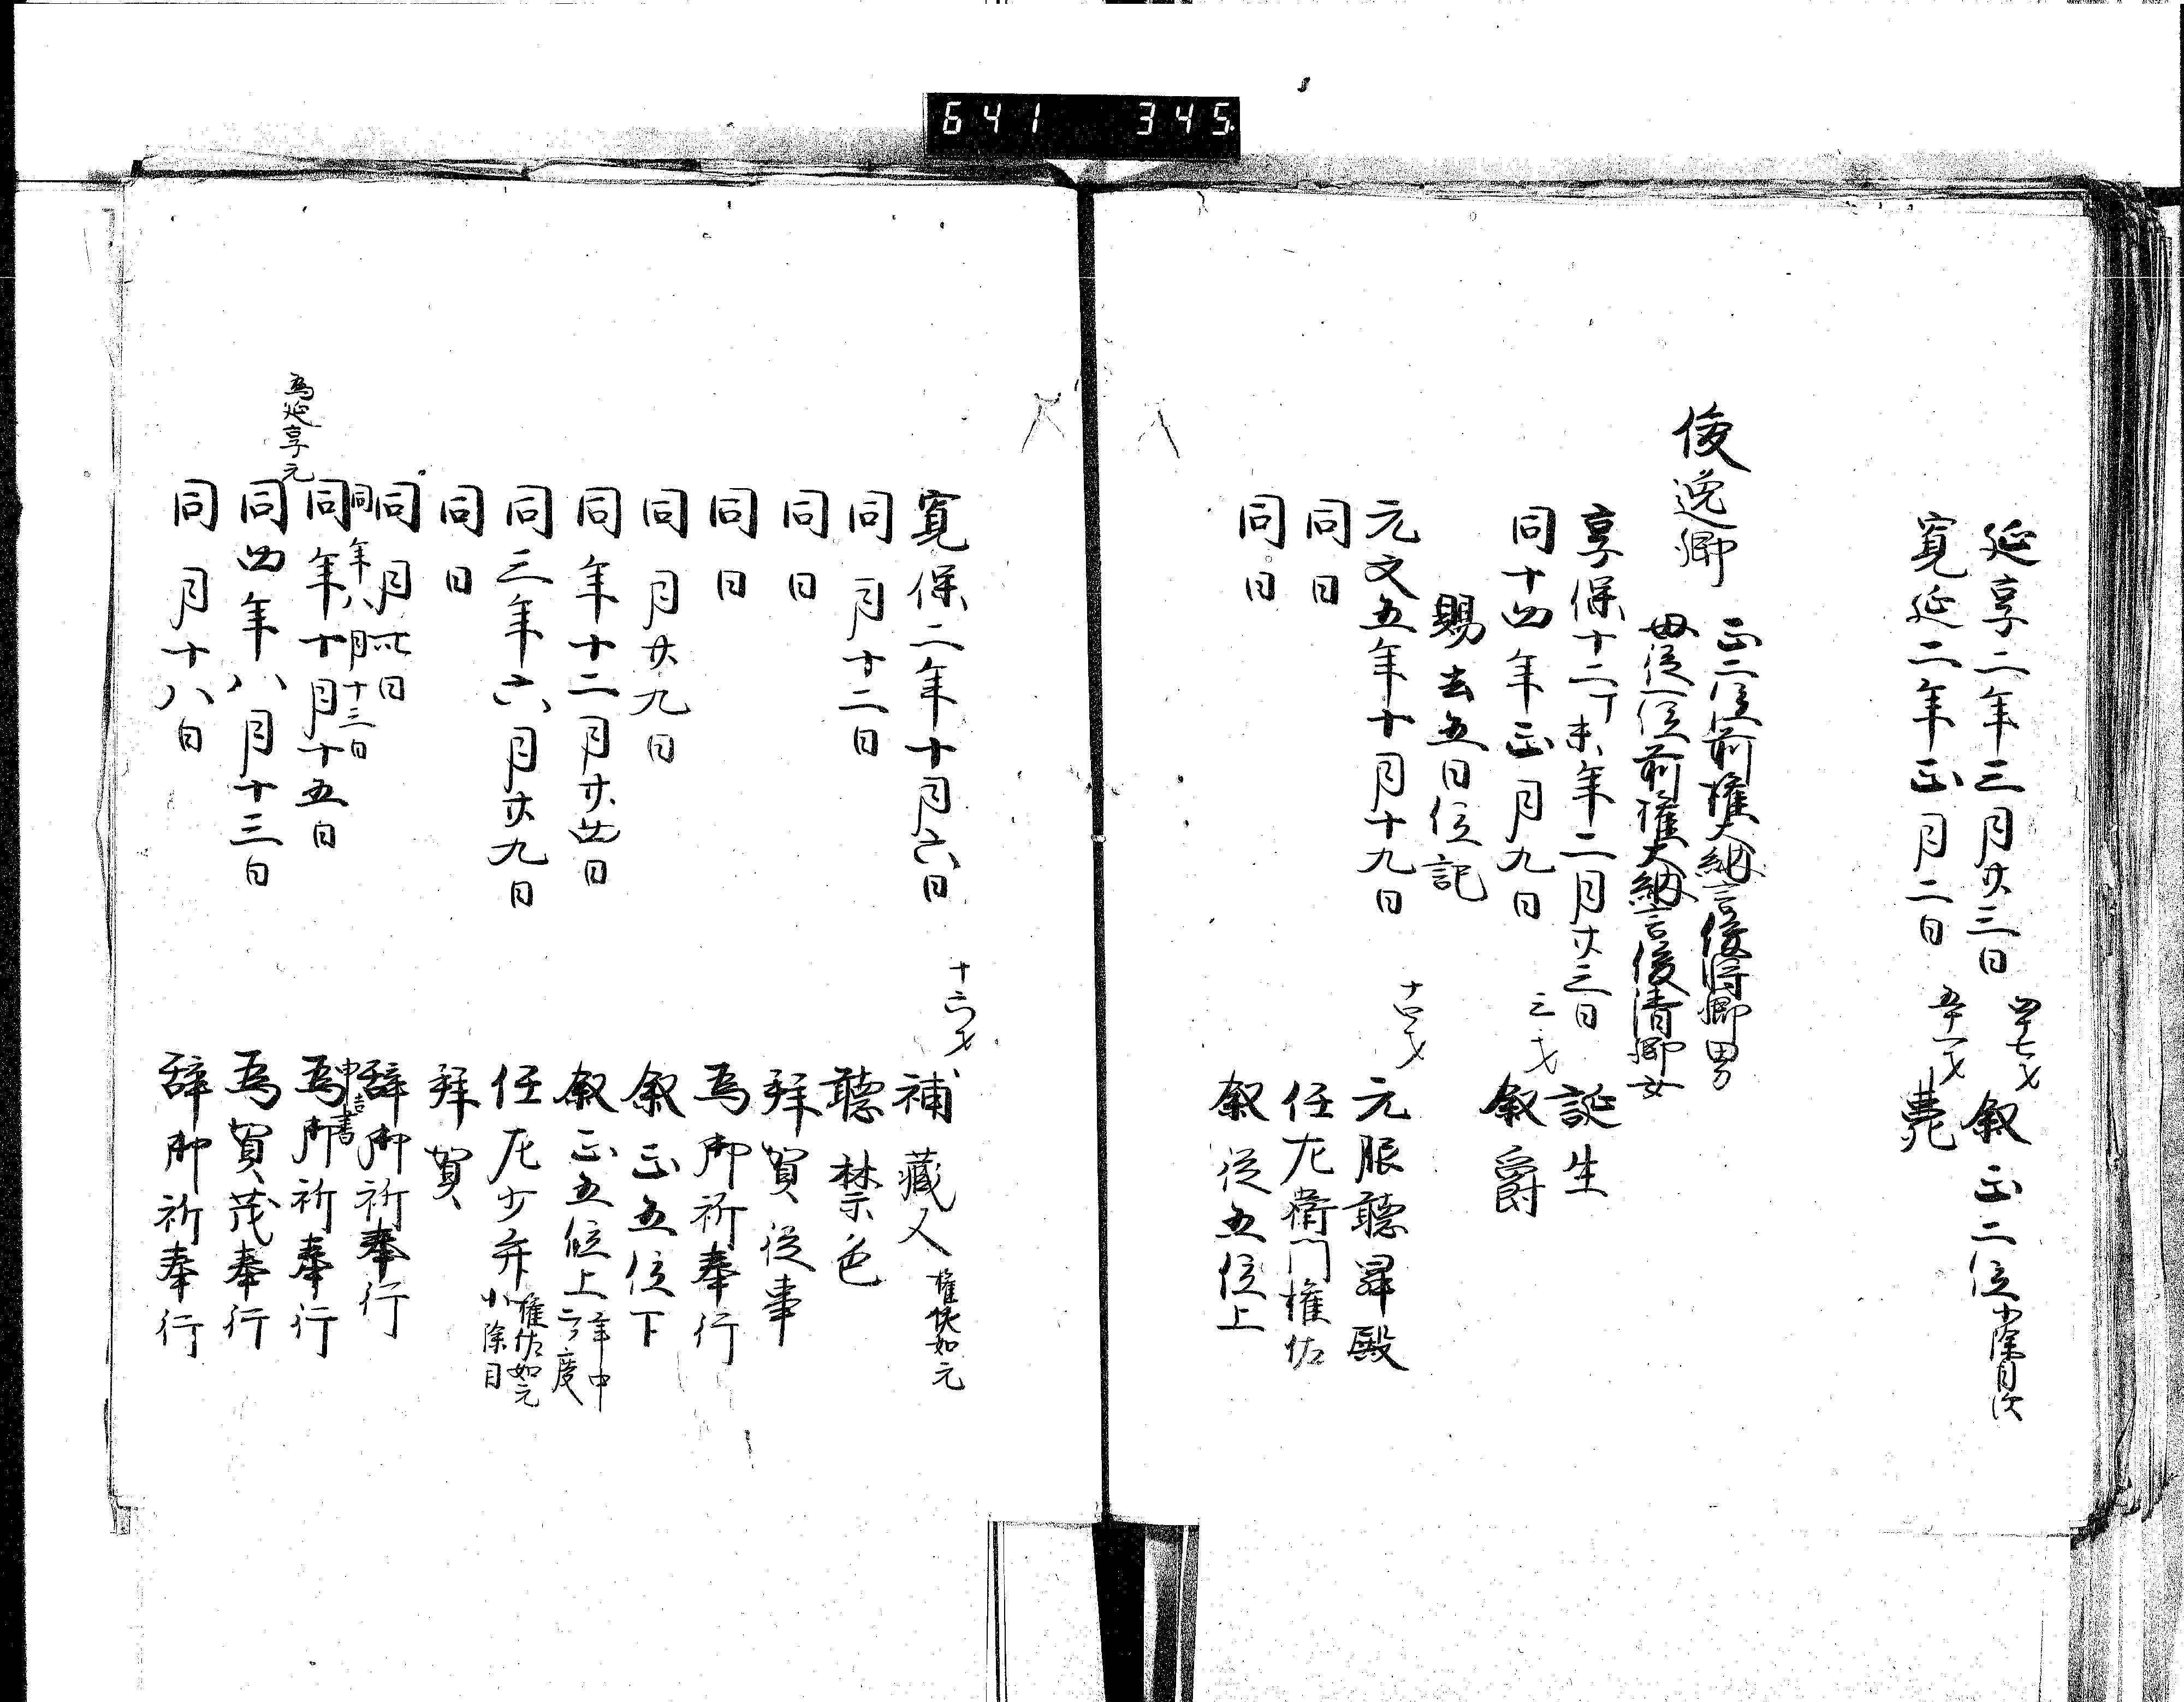 641 345
延享二年三月廿三日 四十七才 叙正二位 小除目次
寛延二年正月二日 五十一才 薨
俊逸卿
正二位前権大納言俊将卿男
母従一位前権大納言俊清卿女
享保十二丁未年二月廿三日 誕生
同十四年正月九日 三才 叙爵
賜去五日位記
元文五年十月十九日 十四才 元服聴昇殿
同日 任左衛門権佐
同日 叙従五位上
寛保二年十月六日 十六才 補蔵人 権佐如元
同月十二日 聴禁色
同日 拝賀従事
同日 為御祈奉行
同月廿九日 叙正五位下
同年十二月廿四日 叙正五位上 年中二ケ度
同三年六月廿九日 任左少弁 権佐如元 小除目
同日 拝賀
同月 日 辞御祈奉行
同年八月十三日 申吉書
同年十月十五日 為御祈奉行
為延享元
同四年八月十三日 為賀茂奉行
同月十八日 辞御祈奉行